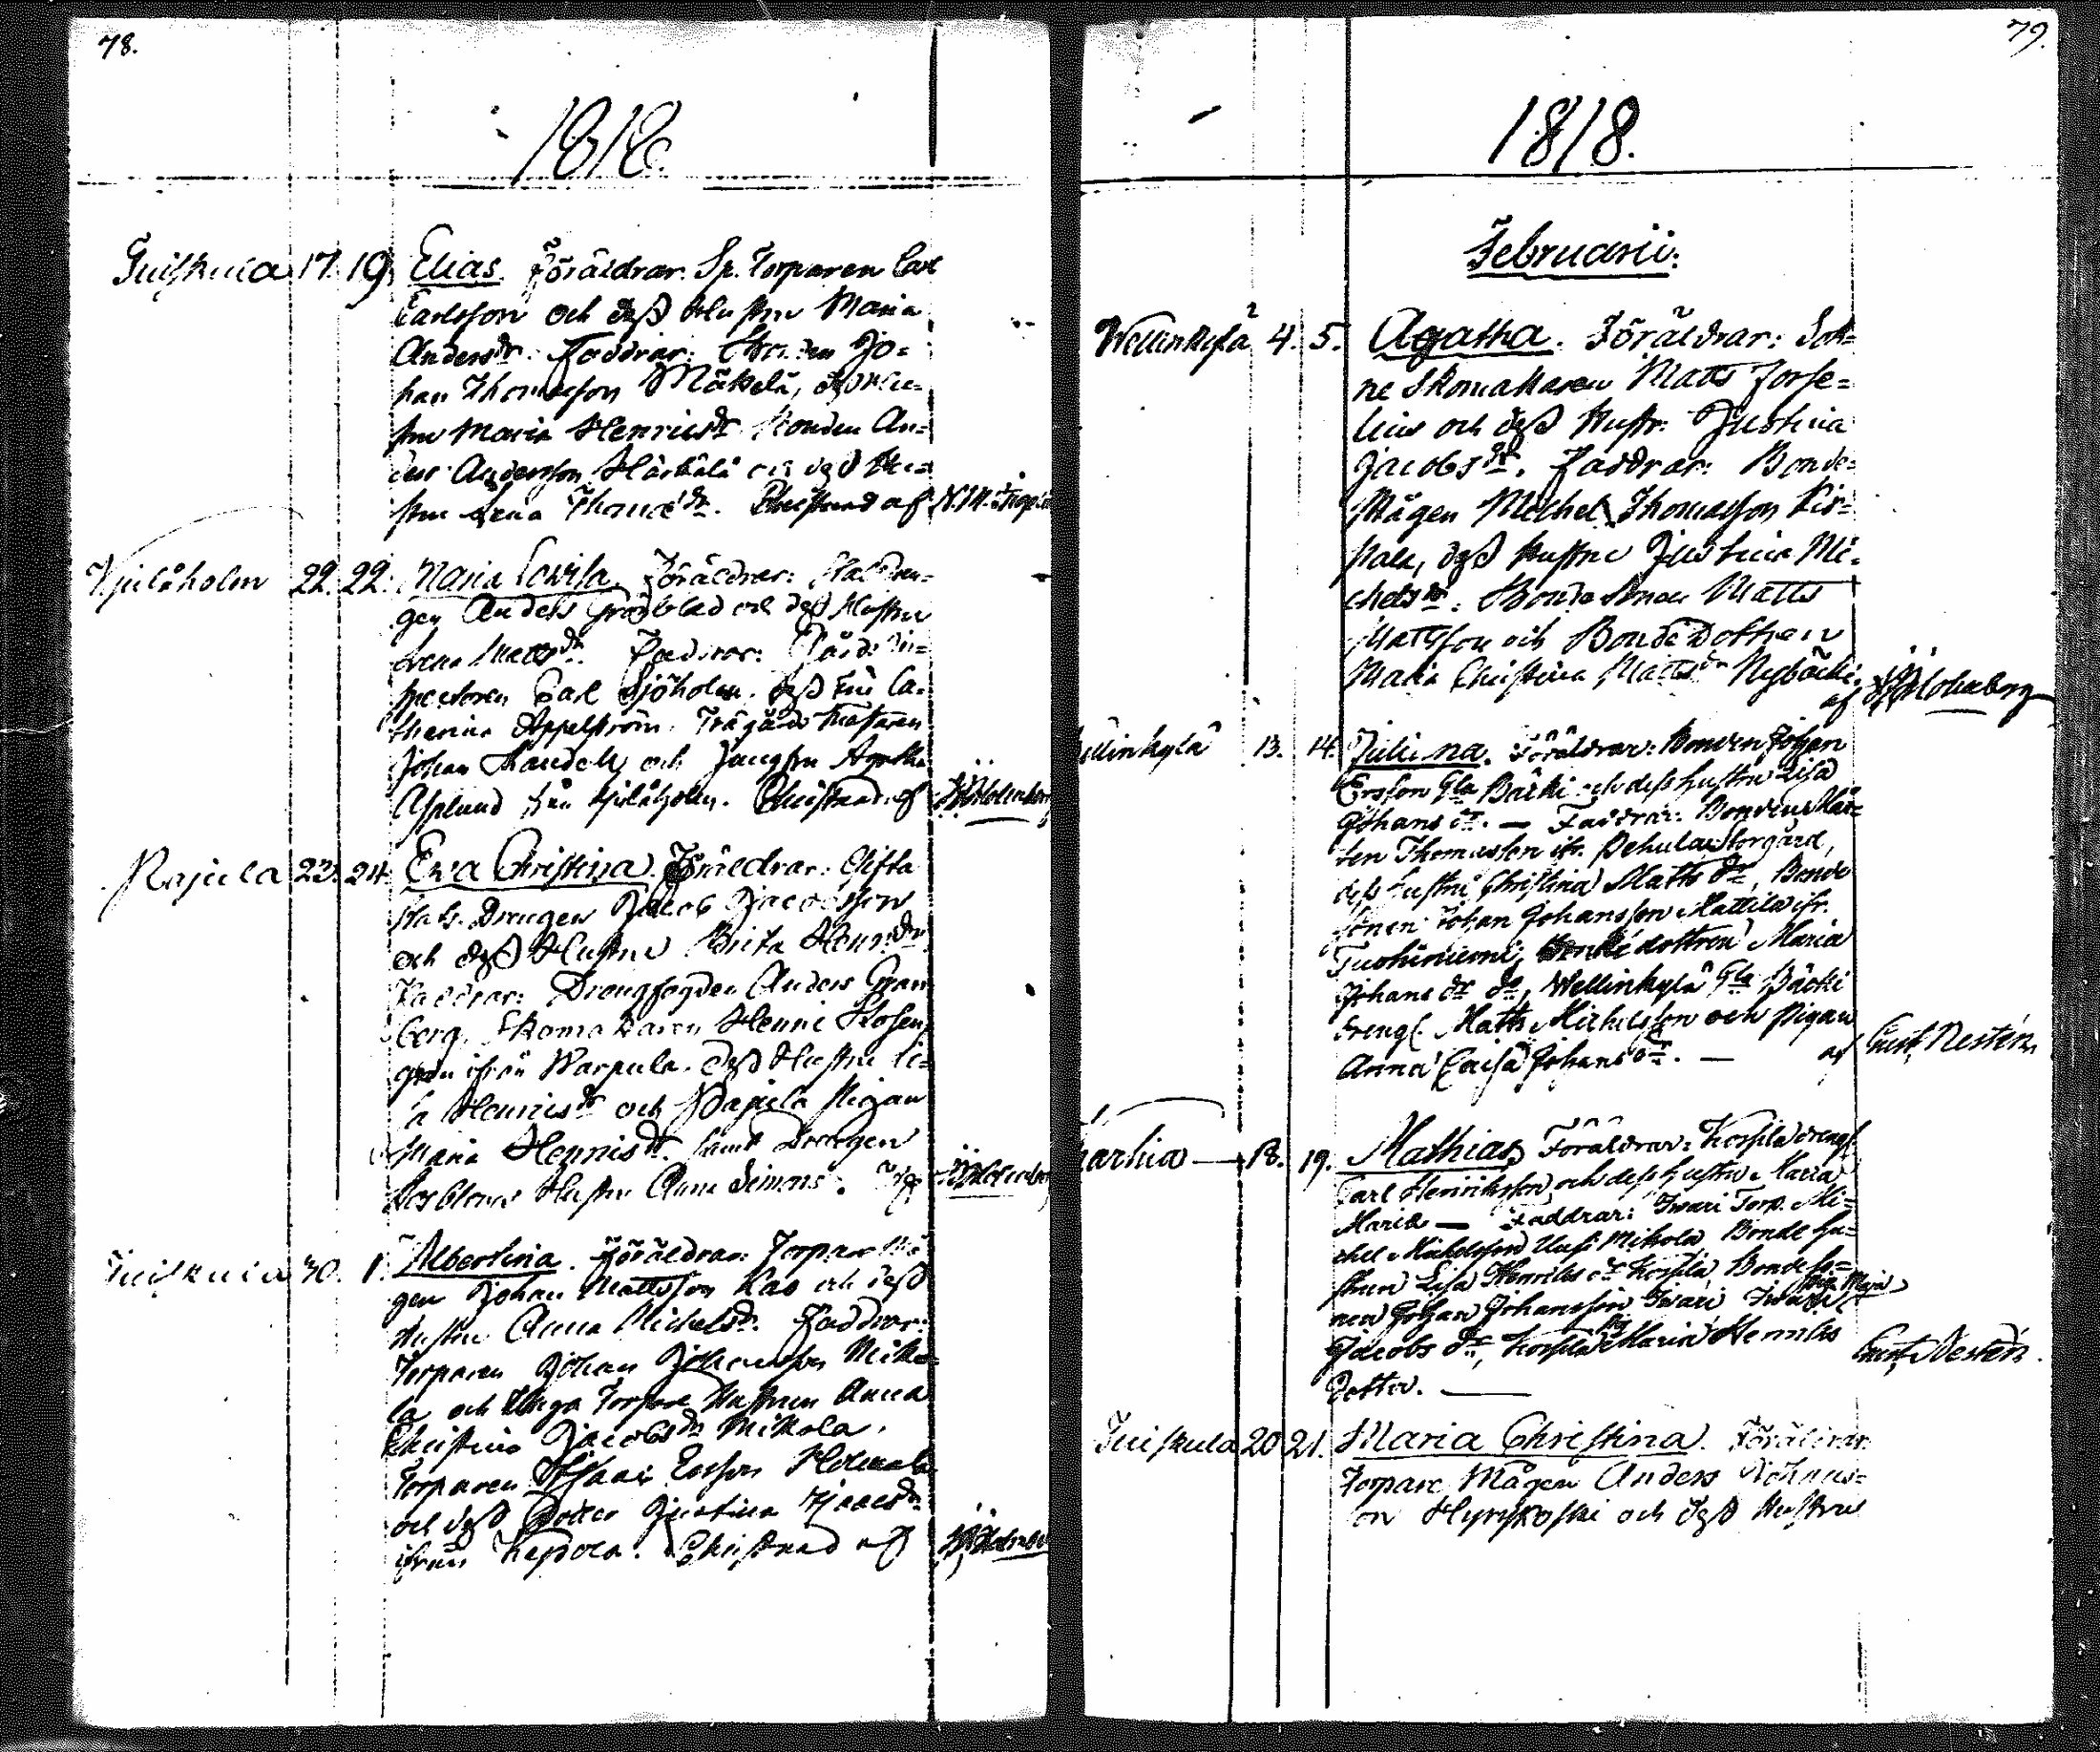 78.
1818.
Tuiskula 17. 19. Elias. Föräldrar: Sp. Torparen Carl
Carlsson och dess Hustru Maria
Andersdr. Faddrar: Bonden Jo-
han Thomasson Mäkelä, dess Hu-
stru Maria Henricsdr. Bonden An-
ders Andersson Härkälä och dess Hu-
stru Lena Thomædr. Christnad af
Kjulåholm 22. 22. Maria Lovisa. Föräldrar: Staldren-
gen Anders och dess Hustru
Lena Mattsdr. Faddrar: Gårds In-
spectoren Carl Sjöholm, dess Fru Ca-
tharina Appelström. Trägårds Mästaren
Johan och Jungfru Agatha
Asplund från Kjulåholm. Christnad af
Rajula 23. 24. Eva Christina. Föräldrar: Gifta
Stals Drengen Jacob Jacobsson
och dess Hustru Brita Henr.dr
Faddrar: Drengfogden Anders Gran
berg. Skomakaren Henric Rosen
gren ifrån Karpula. dess Hustru Li-
sa Henricsdr och Pajula Pigan
Maria Henricsdr. samt Drengen
Hustru Anna Simons.
Tuiskula 30. 1. Albertina. Föräldrar: Torpare Må-
gen Johan Mattsson Kao och dess
Hustru Anna Michelsdr. Faddrar:
Torparen Johan Johansson Miko-
la och Unga Torpare Hustrun Anna
Christina Jacobsdr Mikola.
Torparen Isaac Ersson
och dess Dotter Justina Isaacsdr
ifrån Kepola. Christnad af
79.
1818.
Februarii.
Wellinkylä 4. 5. Agatha. Föräldrar: Sock-
ne Skomakaren Matts Forse-
lius och dess Hustr. Justina
Jacobsdr. Faddrar: Bonde-
Mågen Michel Thomasson Kis-
kala, dess Hustru Justina Mi-
chelsdr. Bonde Sonen Matts
Mattsson och Bonde Dottren
Maria Christina Mattsdr Nybäcki.
af Holmberg
Wellinkylä 13. 14. Juliana. Föräldrar: Bonden Johan
Ersson Gla Bäcki och dess hustru Lisa
Johans dr. — Faddrar: Bonden Mår-
ten Thomasson ifr. Pehula Storgård,
dess hustru Christina Matts dr, Bonde
sonen Johan Johansson Mattila ifr.
Tuohiniemi, Bonde dottren Maria
Johans dr do, Wellinkylä Gla Bäcki
Drengs. Matts Michelsson och Pigan
Anna Caisa Johans dr. — af Gust. Nestén
Karhia — 18. 19. Mathias. Föräldrar: Kospila drengs.
Carl Henriksson och dess hustru Maria
Maria — Faddrar: Iwari Torp. Mi-
chel Michelsson Uusi Mikola Bonde hu-
strun Lisa Henriks dr Kospila Bonde so-
nen Johan Johansson Iwari
Jacobs dr, Kospila Maria Henriks
dotter. — Gust. Nestén.
Tuiskula 20 21. Maria Christina. Föräldrar:
Torpare Mågen Anders Johans-
son Hynskoski och dess Hustru